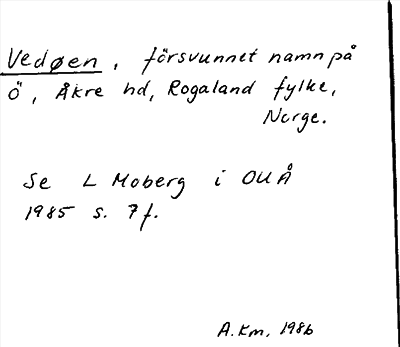 Vedøen, försvunnet namn på
ö, Åkre hd, Rogaland fylke,
Norge.
Se L Moberg i OUÅ
1985 s. 7f.
A.Km, 1986